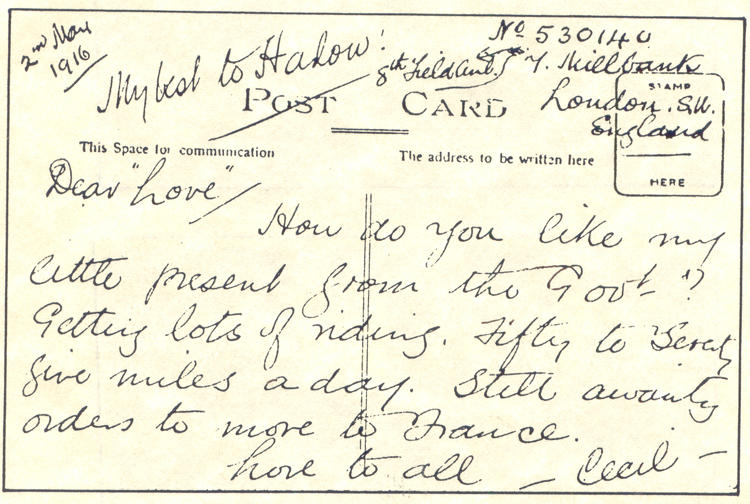 2nd May
1916
My best to Harold!
No 530140
8th Field Amb. 7, Millbank
London. S.W.
England
POST CARD
STAMP
HERE
This Space for communication
The address to be written here
Dear "Love"
How do you like my
little present from the Govt"?
Getting lots of riding. Fifty to Seventy
five miles a day. Still awaiting
orders to move to France.
Love to all – Cecil –